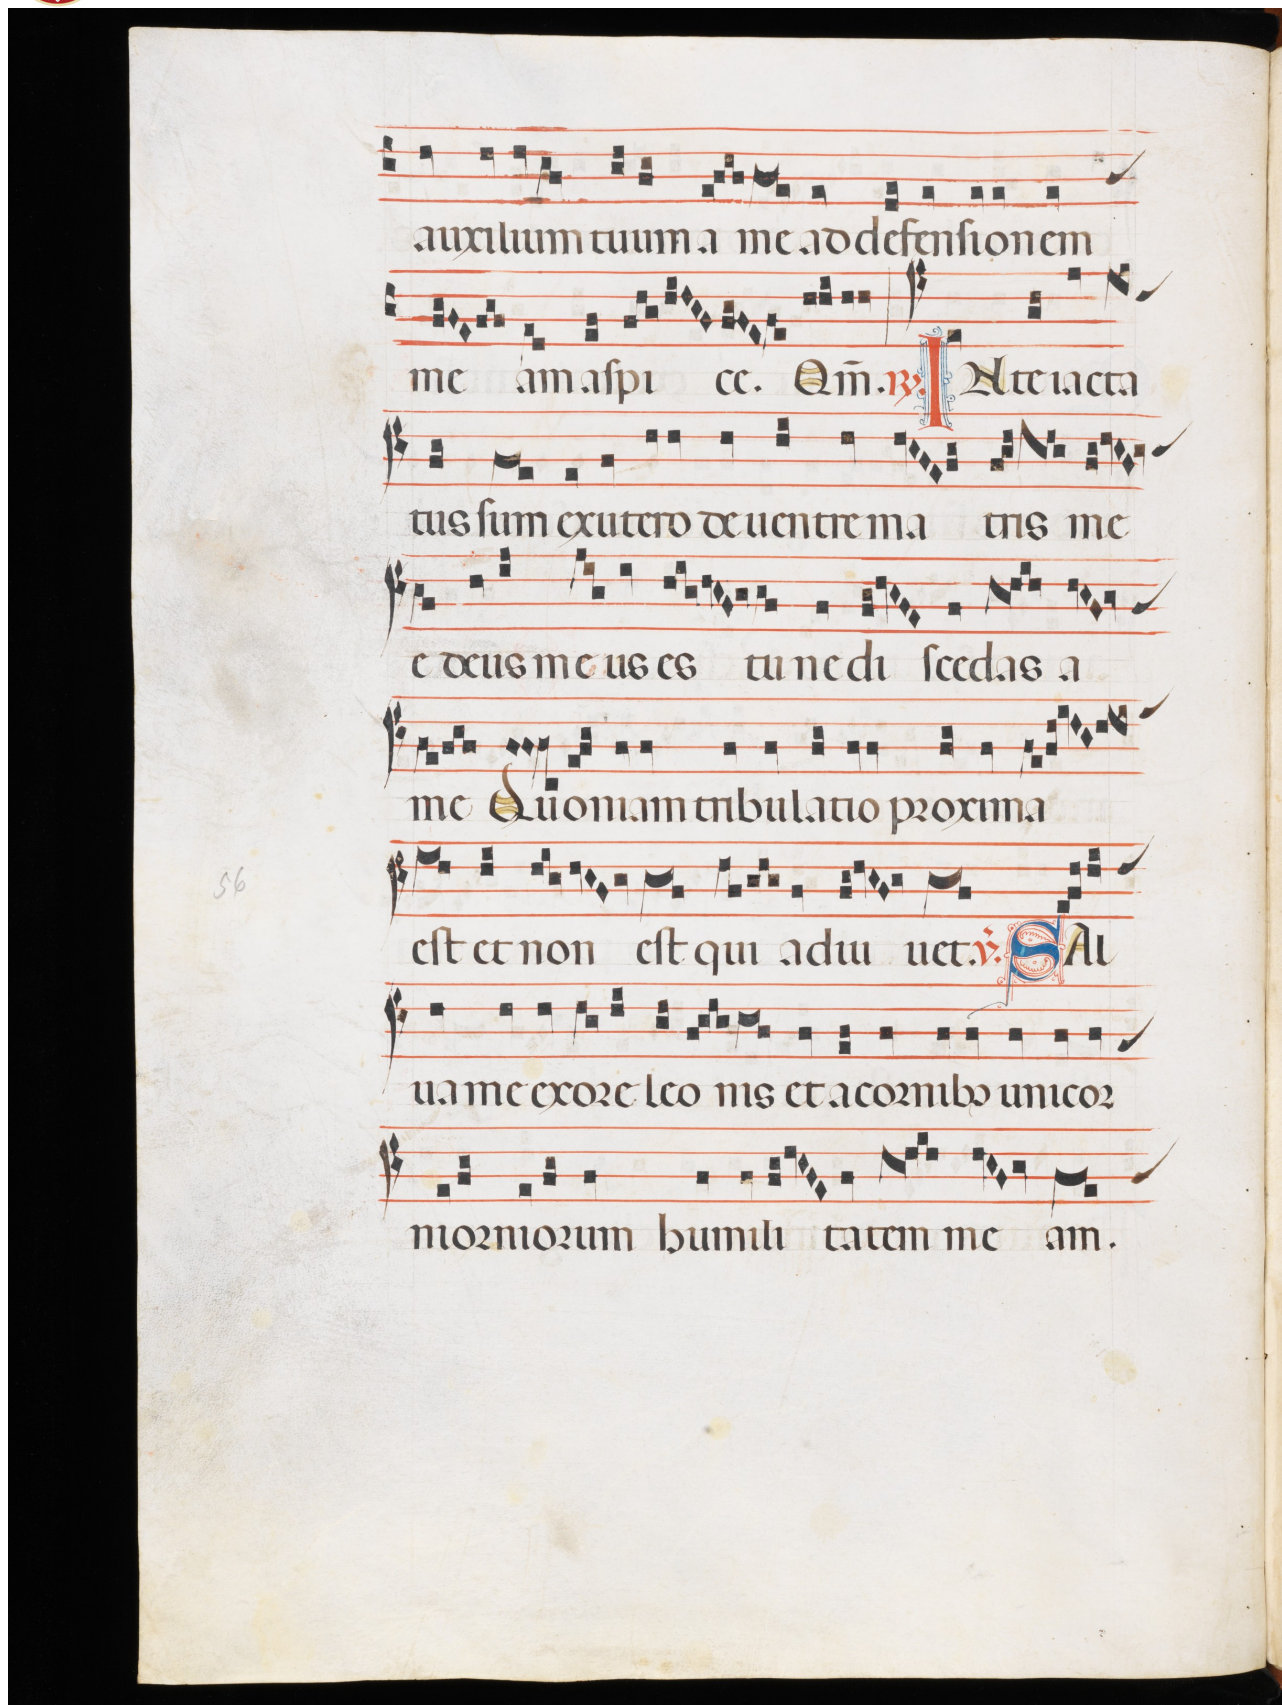 auxilium tuum a me ad defensionem
me am aspi ce. Qm̄. R̸. IN te iacta
tus sum ex utero de uentre ma tris me
e deus me us es tu ne di scedas a
me Quoniam tribulatio proxima
56
est et non est qui adiu uet. V̸. SAl
ua me ex ore leo nis et a cornibꝰ unicor
niorniorum humili tatem me am.